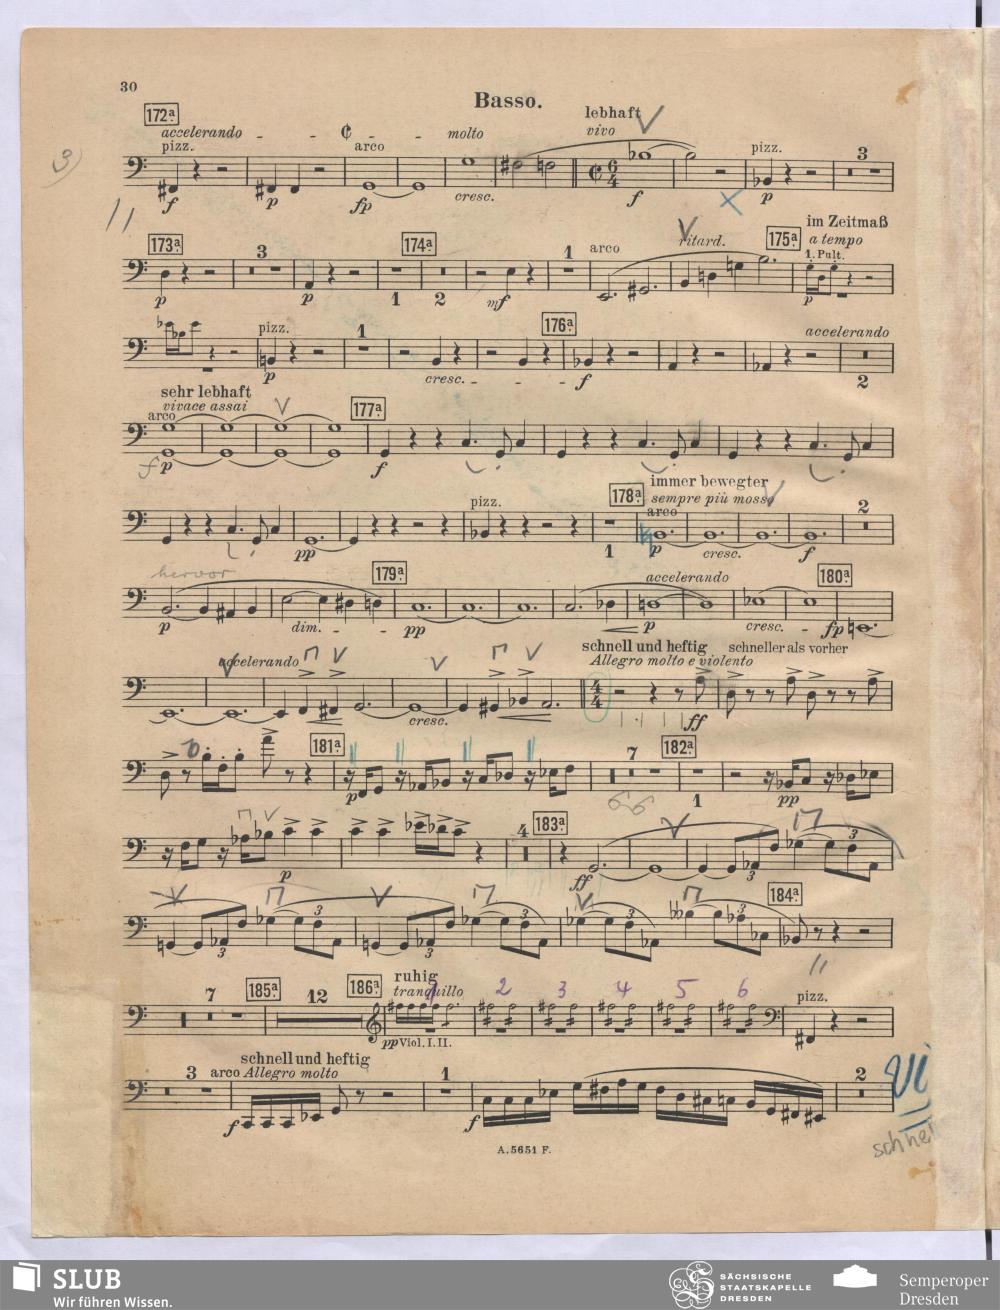 30
Basso.
172a. accelerando - - - - molto lebhaft vivo
pizz. arco pizz. 3
3)
f p fp cresc. f p
173a. 3 174a. 1 arco ritard. 175a. im Zeitmaß a tempo
1. Pult.
p p 1 2 mf p
pizz. 1 176a. accelerando
p cresc. - - - f 2
sehr lebhaft
vivace assai
arco 177a.
f p f
pizz. 178a. immer bewegter
sempre più mosso
arco 2
pp 1 p cresc. f
hervor 179a. accelerando 180a.
p dim. - - pp p cresc. - fp
accelerando schnell und heftig schneller als vorher
Allegro molto e violento
4 4
cresc. ff
181a. 7 182a.
p 1 pp
4 183a. 3 3
p ff
3 3 3 3 3 3 184a.
7 185a. 12 186a. ruhig
tranquillo 1 2 3 4 5 6 pizz.
pp Viol. I. II.
3 arco schnell und heftig
Allegro molto 1 2
f f
A. 5651 F.
SLUB
Wir führen Wissen.
SÄCHSISCHE
STAATSKAPELLE
DRESDEN
Semperoper
Dresden